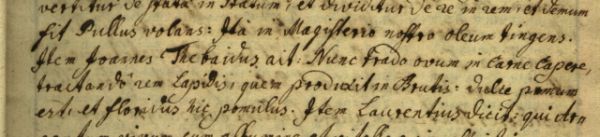 vertitur de statu in statum, et dividitur de re in rem, et demum
fit Pullus volans: Ita in Magisterio nostro oleum tingens.
Item Joannes Thebaidus ait: Nunc trado ovum in carne capere,
tractando rem Lapidis, quem produxit in Brutis: dulce pomum
est, et floridus hic pomulus. Item Laurentius dicit: qui